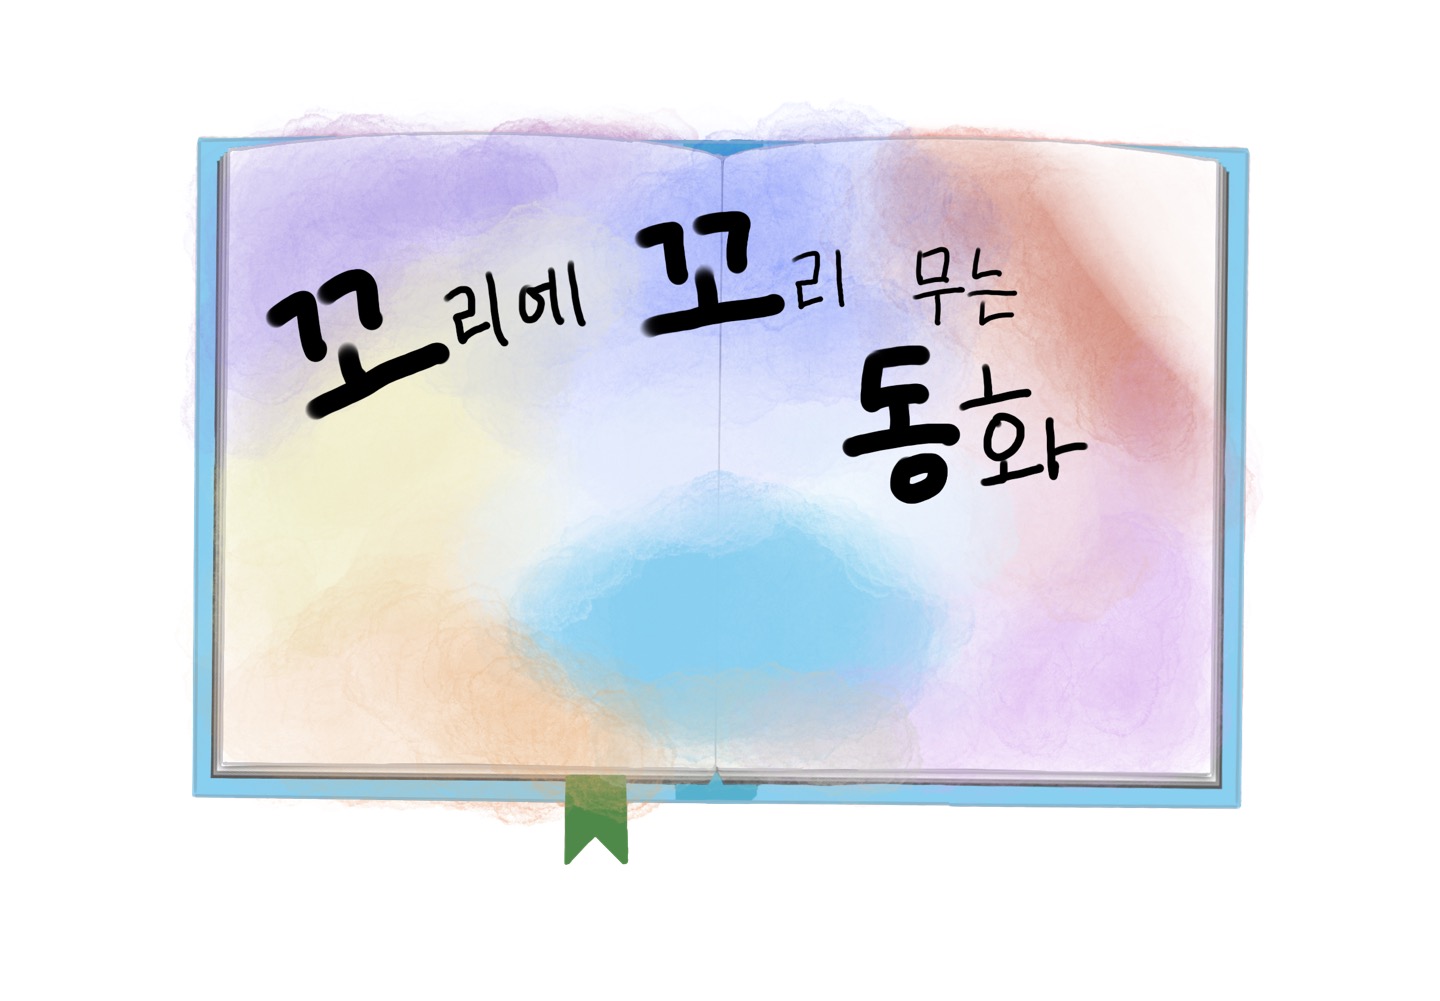 꼬리에 꼬리 무는
동화